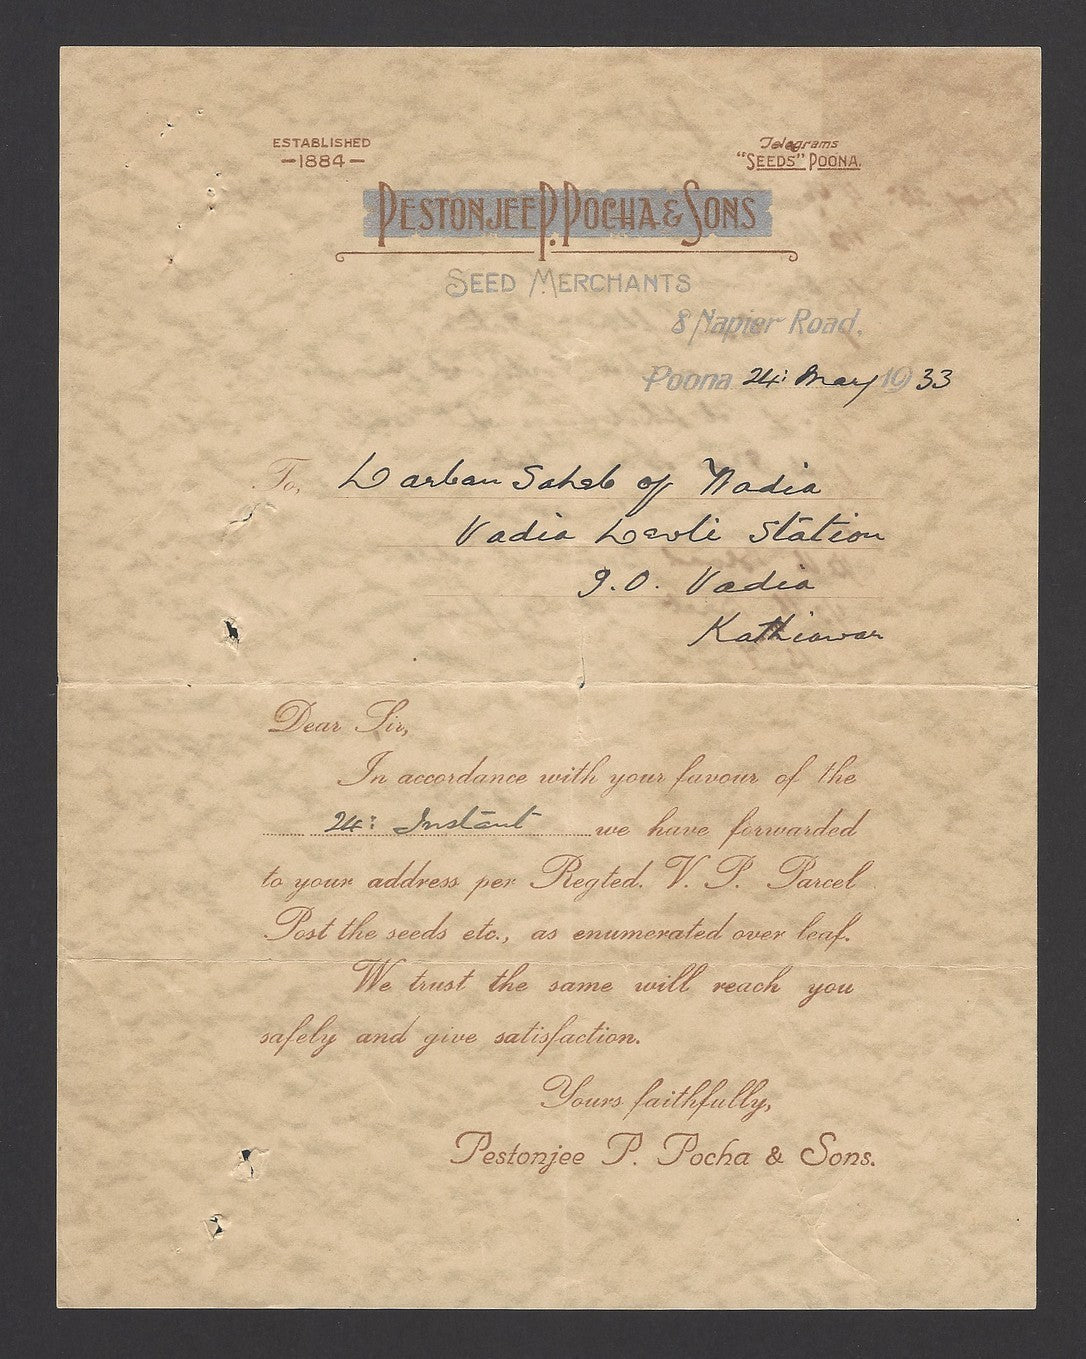 ESTABLISHED
—1884—
Telegrams
"SEEDS" POONA.
PESTONJEE P. POCHA & SONS
SEED MERCHANTS
8 Napier Road,
Poona 24: May 1933
To, Darbar Saheb of Wadia
Vadia Devli Station
P.O. Vadia
Kathiawar
Dear Sir,
In accordance with your favour of the
24: Instant we have forwarded
to your address per Regted. V. P. Parcel
Post the seeds etc., as enumerated over leaf.
We trust the same will reach you
safely and give satisfaction.
Yours faithfully,
Pestonjee P. Pocha & Sons.